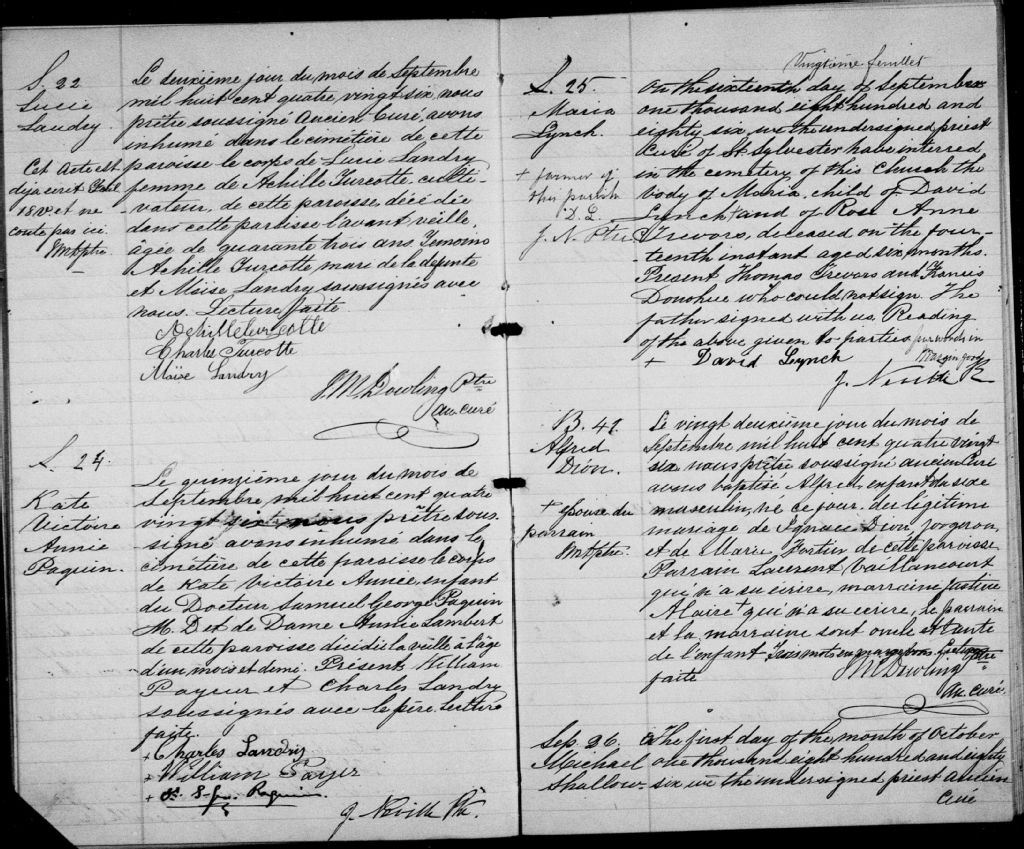 S. 22
Lucie
Landry
Cet Acte est
deja ecrit
18 v. et ne
conte pas ici.
Le deuxième jour du mois de Septembre
mil huit cent quatre vingt six nous
prêtre soussigné Ancien Curé, avons
inhumé dans le cimetière de cette
paroisse le corps de Lucie Landry
femme de Achille Turcotte, culti-
-vateur, de cette paroisse, décédée
dans cette paroisse l'avant veille,
âgée de quarante trois ans. Temoins
Achille Turcotte mari de la defunte
et Moïse Landry soussignés avec
nous. Lecture faite
Achille Turcotte
Charles Turcotte
Moïse Landry
J. M. Dowling Ptre
an. curé
S. 24.
Kate
Victoire
Annie
Paquin.
Le quinzième jour du mois de
Septembre mil huit cent quatre
vingt six nous prêtre sous-
signé avons inhumé dans le
cimetière de cette paroisse le corps
de Kate Victoire Annie, enfant
du Docteur Samuel George Paquin
M. D et de Dame Annie Lambert
de cette paroisse décédée la veille à l'âge
d'un mois et demi. Présents William
Payeur et Charles Landry
soussignés avec le père. Lecture
faite.
+ Charles Landry
+ William Payer
+ Paquin
J. Neville Ptr
Vingtième feuillet
S. 25.
Maria
Lynch.
+ former of
this parish
D. L.
J. N. Ptre
On the sixteenth day of September
one thousand eight hundred and
eighty six we the undersigned priest
Curé of St. Sylvester have interred
in the cemetery of this Church the
body of Maria, child of David
Lynch + and of Rose Anne
Trevors, deceased on the four-
-teenth instant aged six months.
Present Thomas Trevors and Francis
Donohue who could not sign. The
father signed with us. Reading
of the above given to parties words in
margin good
+ David Lynch
J. Neville
B. 41.
Alfred
Dion.
+ épouse du
parrain
Le vingt deuxième jour du mois de
Septembre mil huit cent quatre vingt
six nous prêtre soussigné ancien Curé
avons baptisé Alfred enfant du sexe
masculin, né ce jour du légitime
mariage de Ignace Dion forgeron,
et de Marie Fortier de cette paroisse
Parrain Laurent Vaillancourt
qui n'a su écrire, marraine Justine
Alaire + qui n'a su écrire, le parrain
et la marraine sont oncle et tante
de l'enfant Trois mots en marge bons. Lecture
faite
J M Dowling Ptre
an. curé.
Sep. 26.
Michael
Shallow
The first day of the month of October
one thousand eight hundred and eighty
six we the undersigned priest ancien
Curé